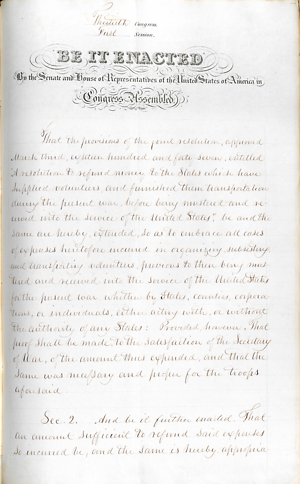 Thirtieth Congress
First Session
BE IT ENACTED
By the Senate and House of Representatives of the United States of America in
Congress Assembled,
That the provisions of the joint resolution, approved
March third, eighteen hundred and forty seven, entitled
"A resolution to refund money to the States which have
supplied volunteers and furnished them transportation
during the present war, before being mustered and re-
ceived into the service of the United States" be and the
same are hereby extended, so as to embrace all cases
of expenses heretofore incurred in organizing, subsisting
and transporting volunteers, previous to their being mus-
tered and received into the service of the United States
for the present war, whether by States, counties, corpora-
tions, or individuals, either acting with, or without
the authority of any State: Provided, however, That
proof shall be made to the satisfaction of the Secretary
of War, of the amount thus expended, and that the
same was necessary and proper for the troops
aforesaid
Sec. 2. And be it further enacted, That
an amount sufficient to refund said expenses
so incurred be, and the same is hereby appropria-